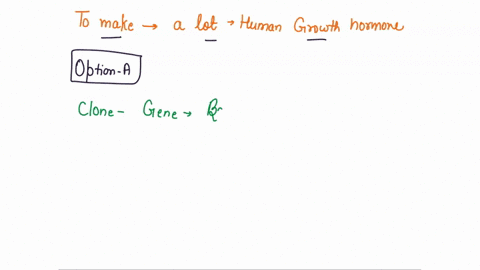 To make → a lot → Human Growth hormone
Option-A
Clone - Gene →